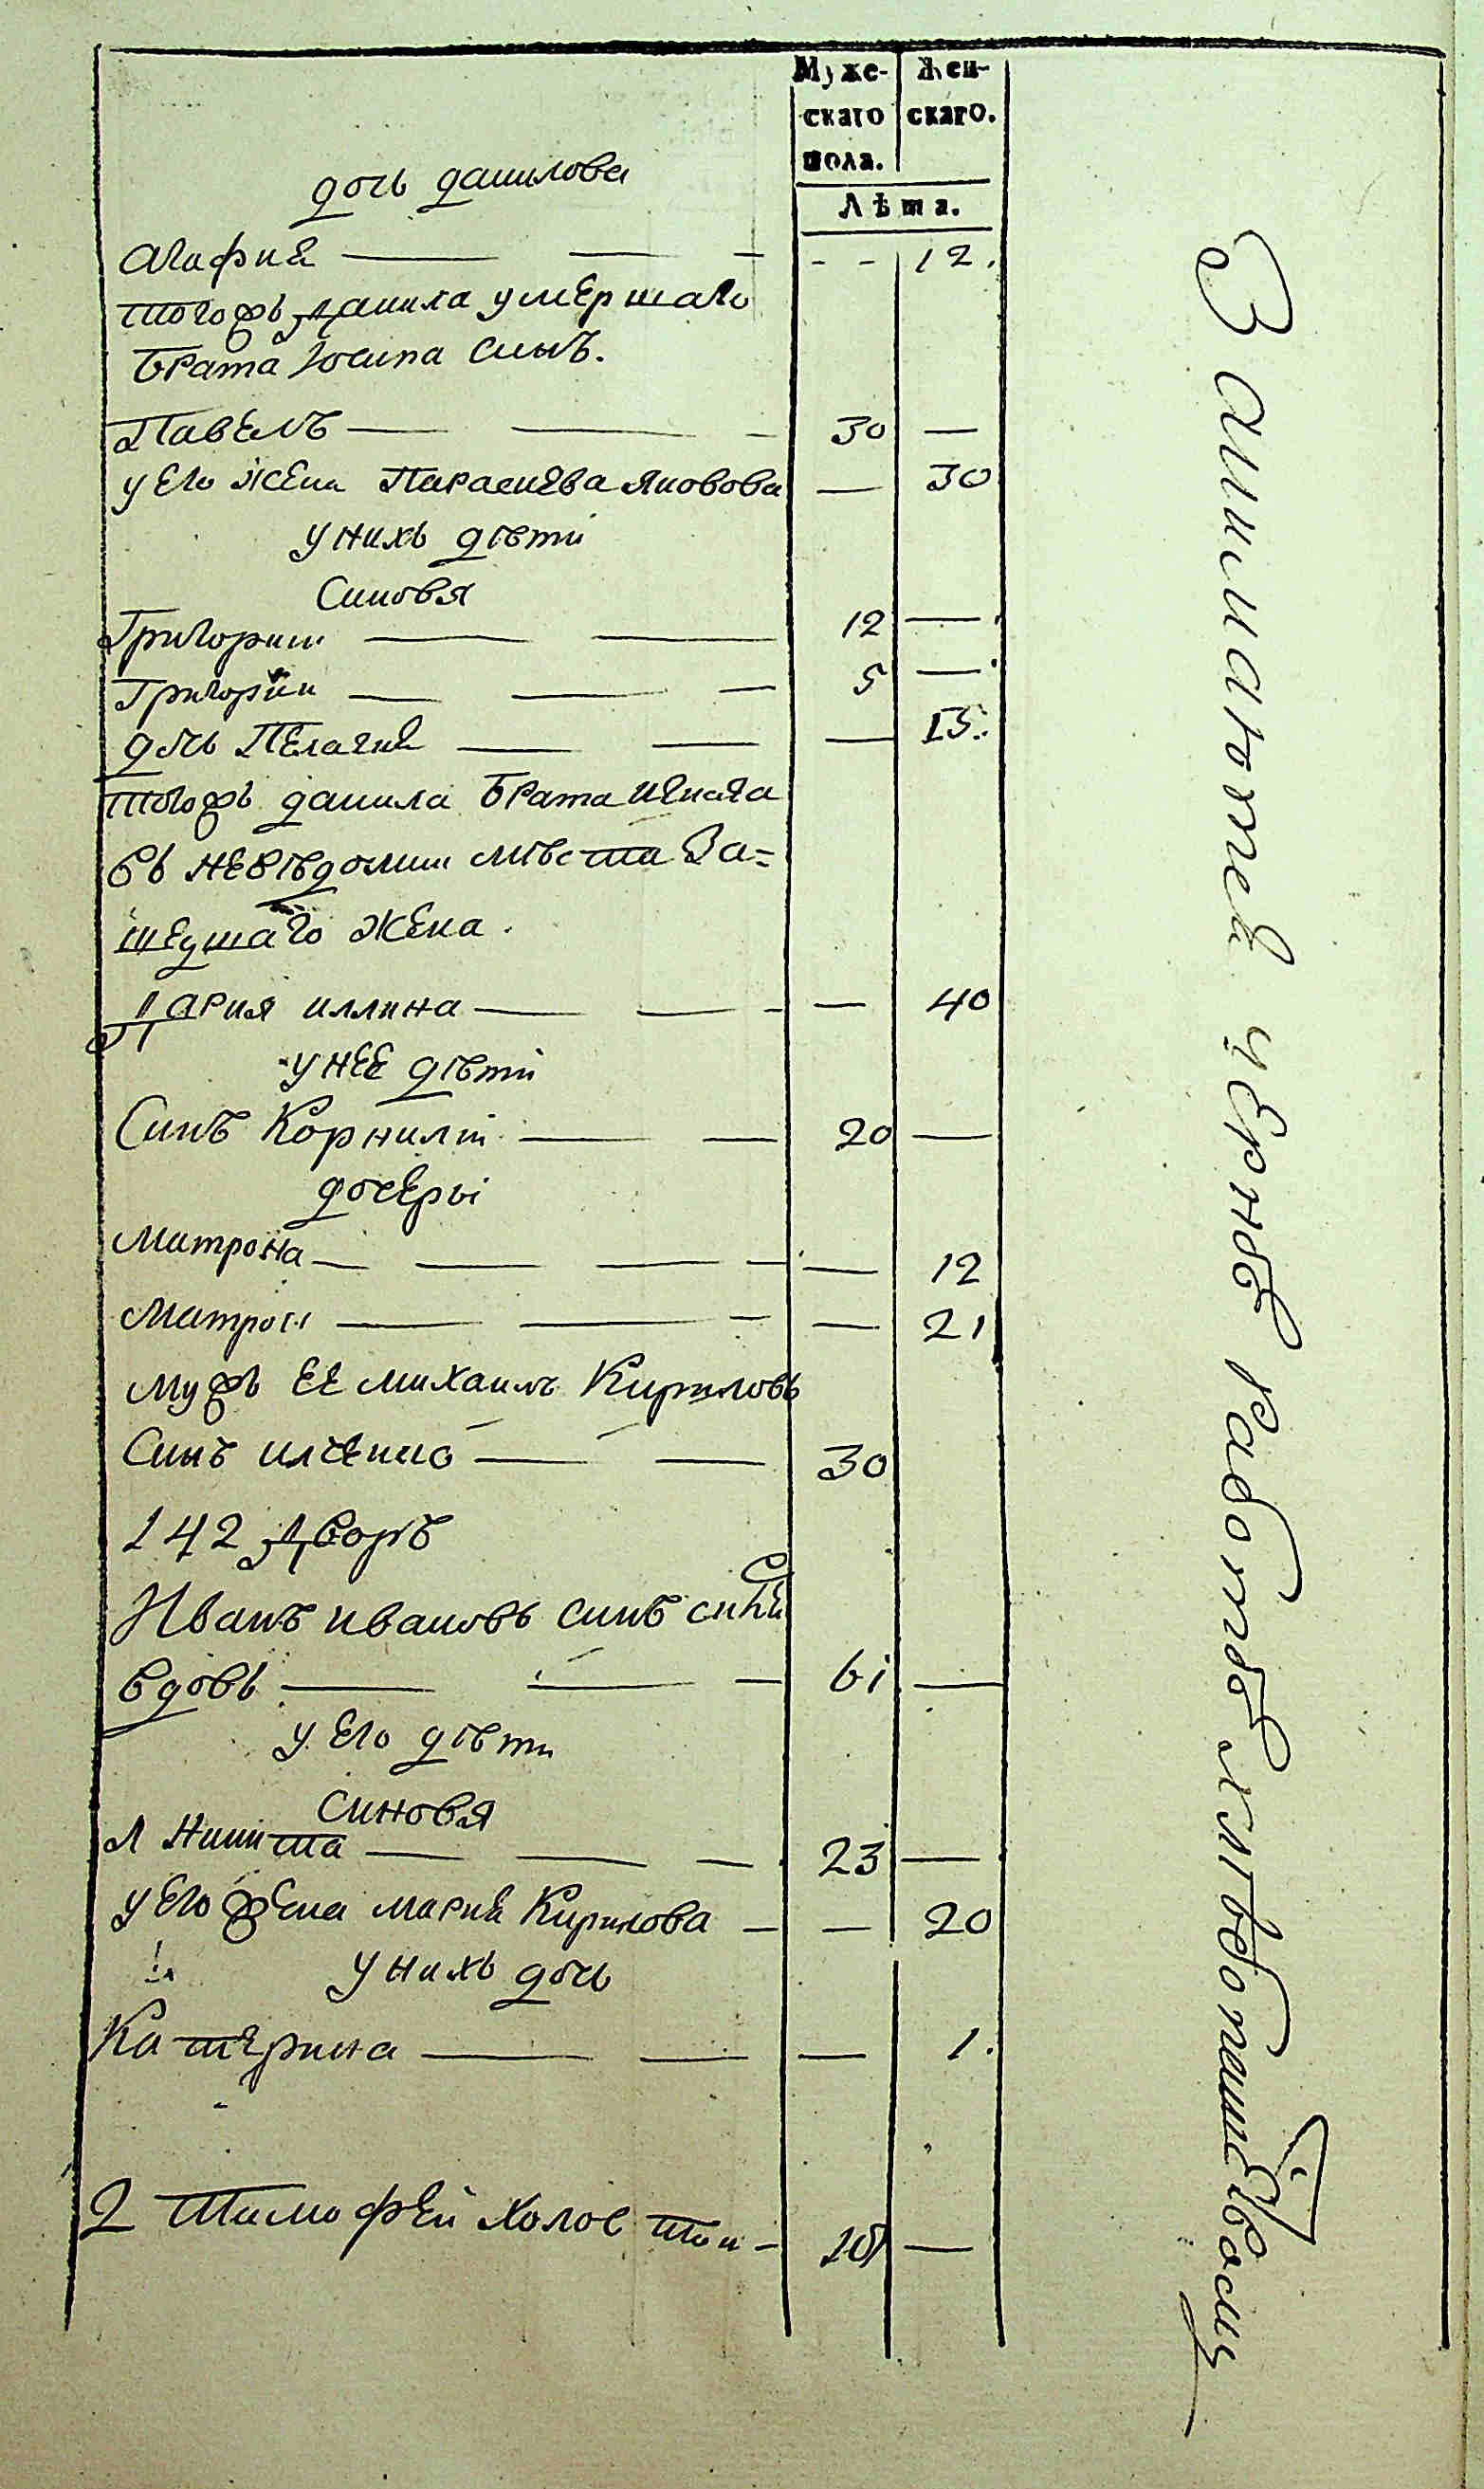 Муже- Жен-
скаго скаго.
пола.
Лѣта.
дочь данилова
агафия — — — - - 12.
тогожъ Данила умершаго
брата Іосипа синъ.
Павелъ — — — 30 —
у его жена Параскева Яковова — 30
у нихъ дѣти
Синовя
Григории — — 12 —
Григорий — — — 5 —
дочь Пелагия — — — 15.
тогожъ данила брата
въ невѣдомии мѣста За=
шедшаго жена.
Дария иллина — — — — 40
у нее дѣти
Синъ Корнилій — — 20 —
дочери
Матрона — — — — — 12
Матрон — — — — 21
мужъ ее михаилъ Кириловъ
Синъ — — 30
142 Дворъ
Иванъ ивановъ синъ
вдовъ — — — 61 —
у его дѣти
Синовя
1 Никита — — — 23 —
у его жена мария Кирилова — — 20
у нихъ дочь
Катерина — — — — 1.
2 Тимофей холостой — —
Занимаются черною работою хлѣбопашествомъ